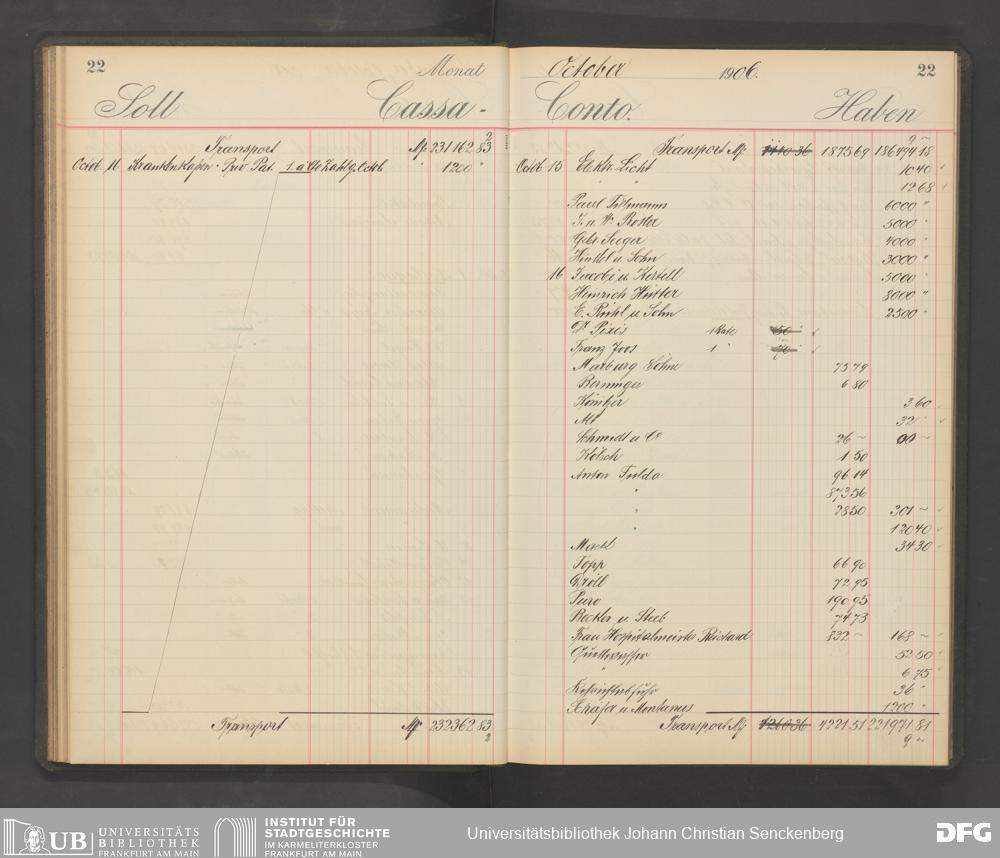 22 Monat
Soll Cassa-
2
Transport Mk 231162 83
Octob. 16 Krankenkassen Priv. Pat. 1. a Cto Zahlg. Octob " 1200 "
Transport Mk 232362 83
2
October 1906. 22
Conto. Haben
9 ~
Transport Mk 1110 36 1875 69 186494 18
Octob 15 Elektr. Licht 10 40
" " 12 68
Paul Tillmanns 6000 "
J. u. W. Roster 5000 "
Gebr Seeger 4000 "
Hinkel u. Sohn 3000 "
16 Jacobi u. Kertell 5000 "
Heinrich Hütter 8000 "
E. Riehl u. Sohn 2500 "
Dr. Pixis 1 Rate 50
Franz Joos 1 " 70
Marburg Söhne 75 79
Berninger 6 80
Könitzer 3 60
Alt 32 "
Schmidt u. Co 26 ~
Kölsch 1 50
Anton Fulda 96 14
" 873 56
" 28 50 301 ~
" 120 40
Mack 34 30
Topp 66 90
Gröll 72 95
Puro 190 95
Becker u. Steeb 74 73
Frau Hospitalmeister Reichard 832 ~ 168 ~
Quellwasser 52 50
" 6 75
Kehrichtabfuhr 36 "
Schäfer u. Montanus 1200 "
Transport Mk 1260 36 4221 51 221971 81
9 ~
UB UNIVERSITÄTS
BIBLIOTHEK
FRANKFURT AM MAIN
INSTITUT FÜR
STADTGESCHICHTE
IM KARMELITERKLOSTER
FRANKFURT AM MAIN
Universitätsbibliothek Johann Christian Senckenberg
DFG